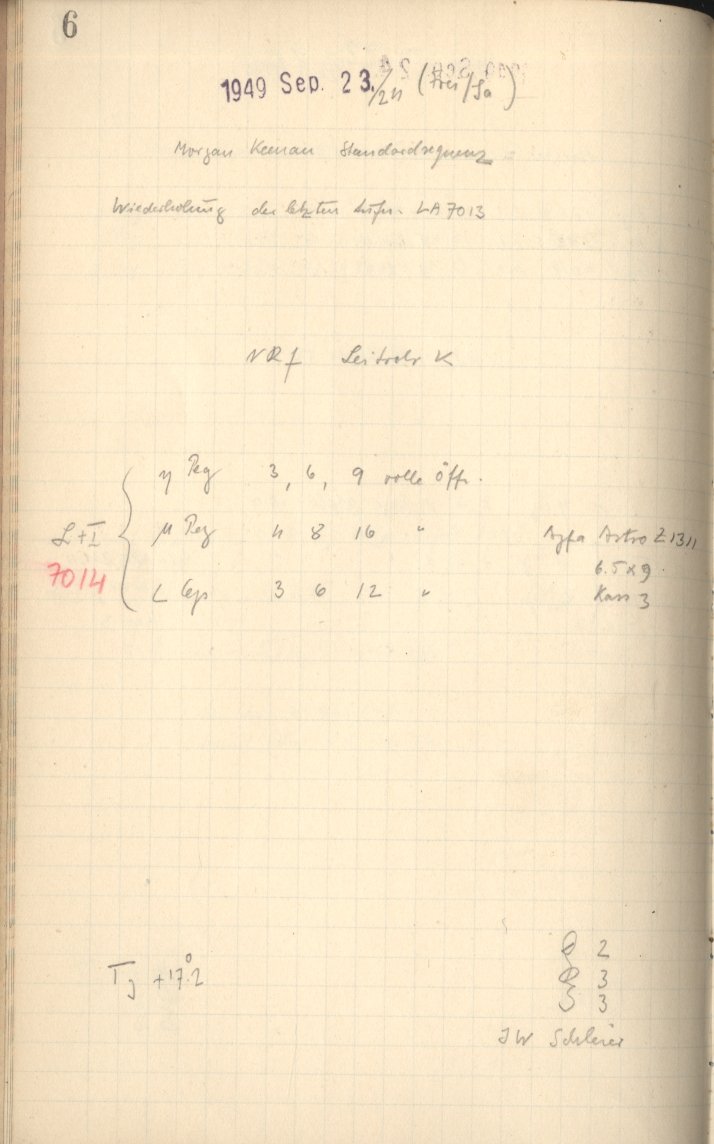 6
1949 Sep. 23./24 (Frei/Sa)
Morgan Keenan Standardsequenz
Wiederholung der letzten Aufn. LA 7013
Leitrohr K
η Peg 3, 6, 9 volle Öff.
L+I μ Peg 4 8 16 "
Agfa Astro Z1311
7014
6.5x9
ι Cep 3 6 12 "
Kass 3
2
T +17°.2
3
S 3
Schleier